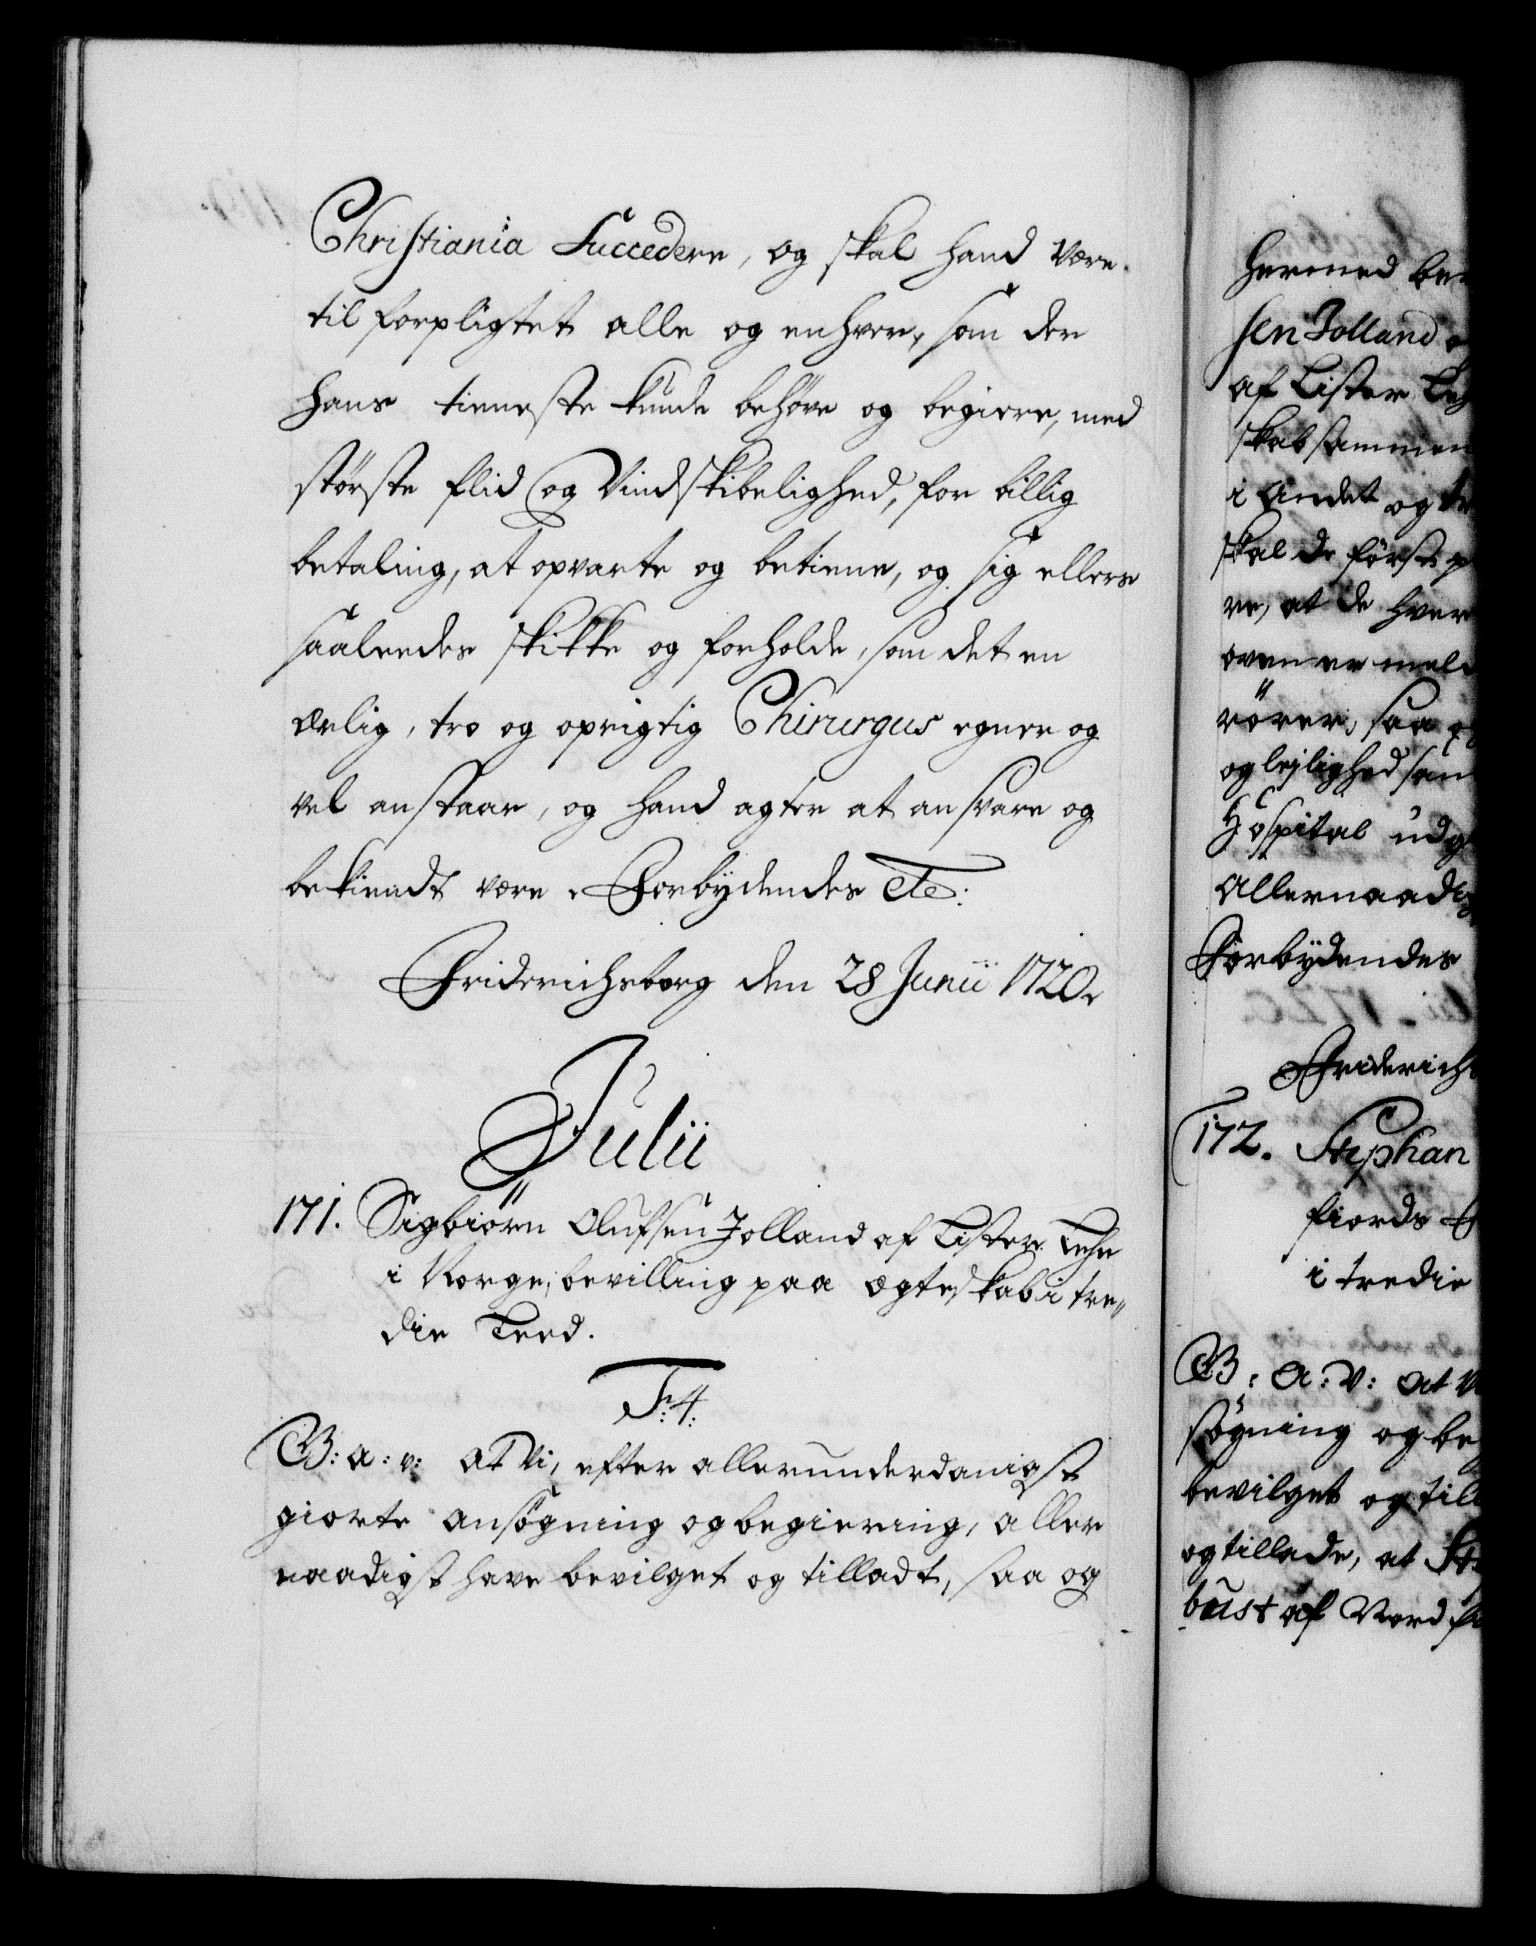 Christiania Succedere, og skal hand være
til forpligtet alle og enhver, som der
hans tieneste kunde behöve og begiere, med
störste flid og Vindskibelighed, for billig
betaling, at opvarte og betiene, og sig ellers
saaledes skikke og forholde, som det en
ærlig, tro og oprigtig Chirurgus egner og
vel anstaar, og hand agter at ansvare og
bekiendt være. Forbÿdendes Etc:
Friderichsborg den 28 Junii 1720.
Julii
171. Sigbiörn Olufsen Jolland af Lister Lehn
i Norge, bevilling paa Ægteskab i tre„
die Leed.
F:4:
G: A: V: At Vi, efter allerunderdanigst
giorte ansögning og begiering, aller
naadigst have bevilget og tilladt, saa og
hermed be
sen Jolland
af Lister Leh
skab sammen
i Andet og tr
skal de först p
re, at de hver
oven er meld
rörer, saa
og lejlighed sam
Hospital udg
Allernaadig
Forbÿdendes
Friderichs
172. Stephan
fiords
i tredie
G: A: V: At V
søgning og be
bevilget og till
og tillade, at St
bust af Nordfi